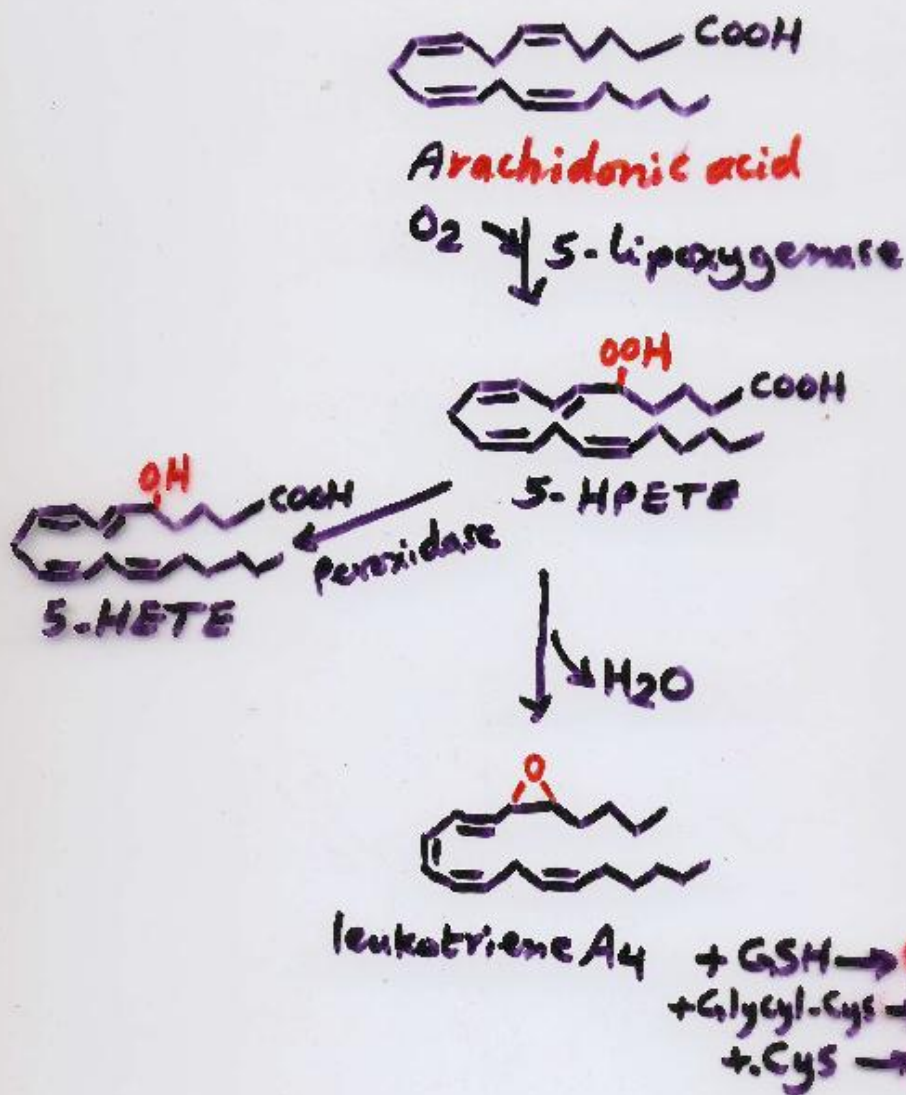 COOH
Arachidonic acid
O2 5-lipoxygenase
OOH
COOH
5-HPETE
OH
COOH
5-HETE
Peroxidase
H2O
O
leukotriene A4 +GSH→
+Glycyl-Cys→
+.Cys→